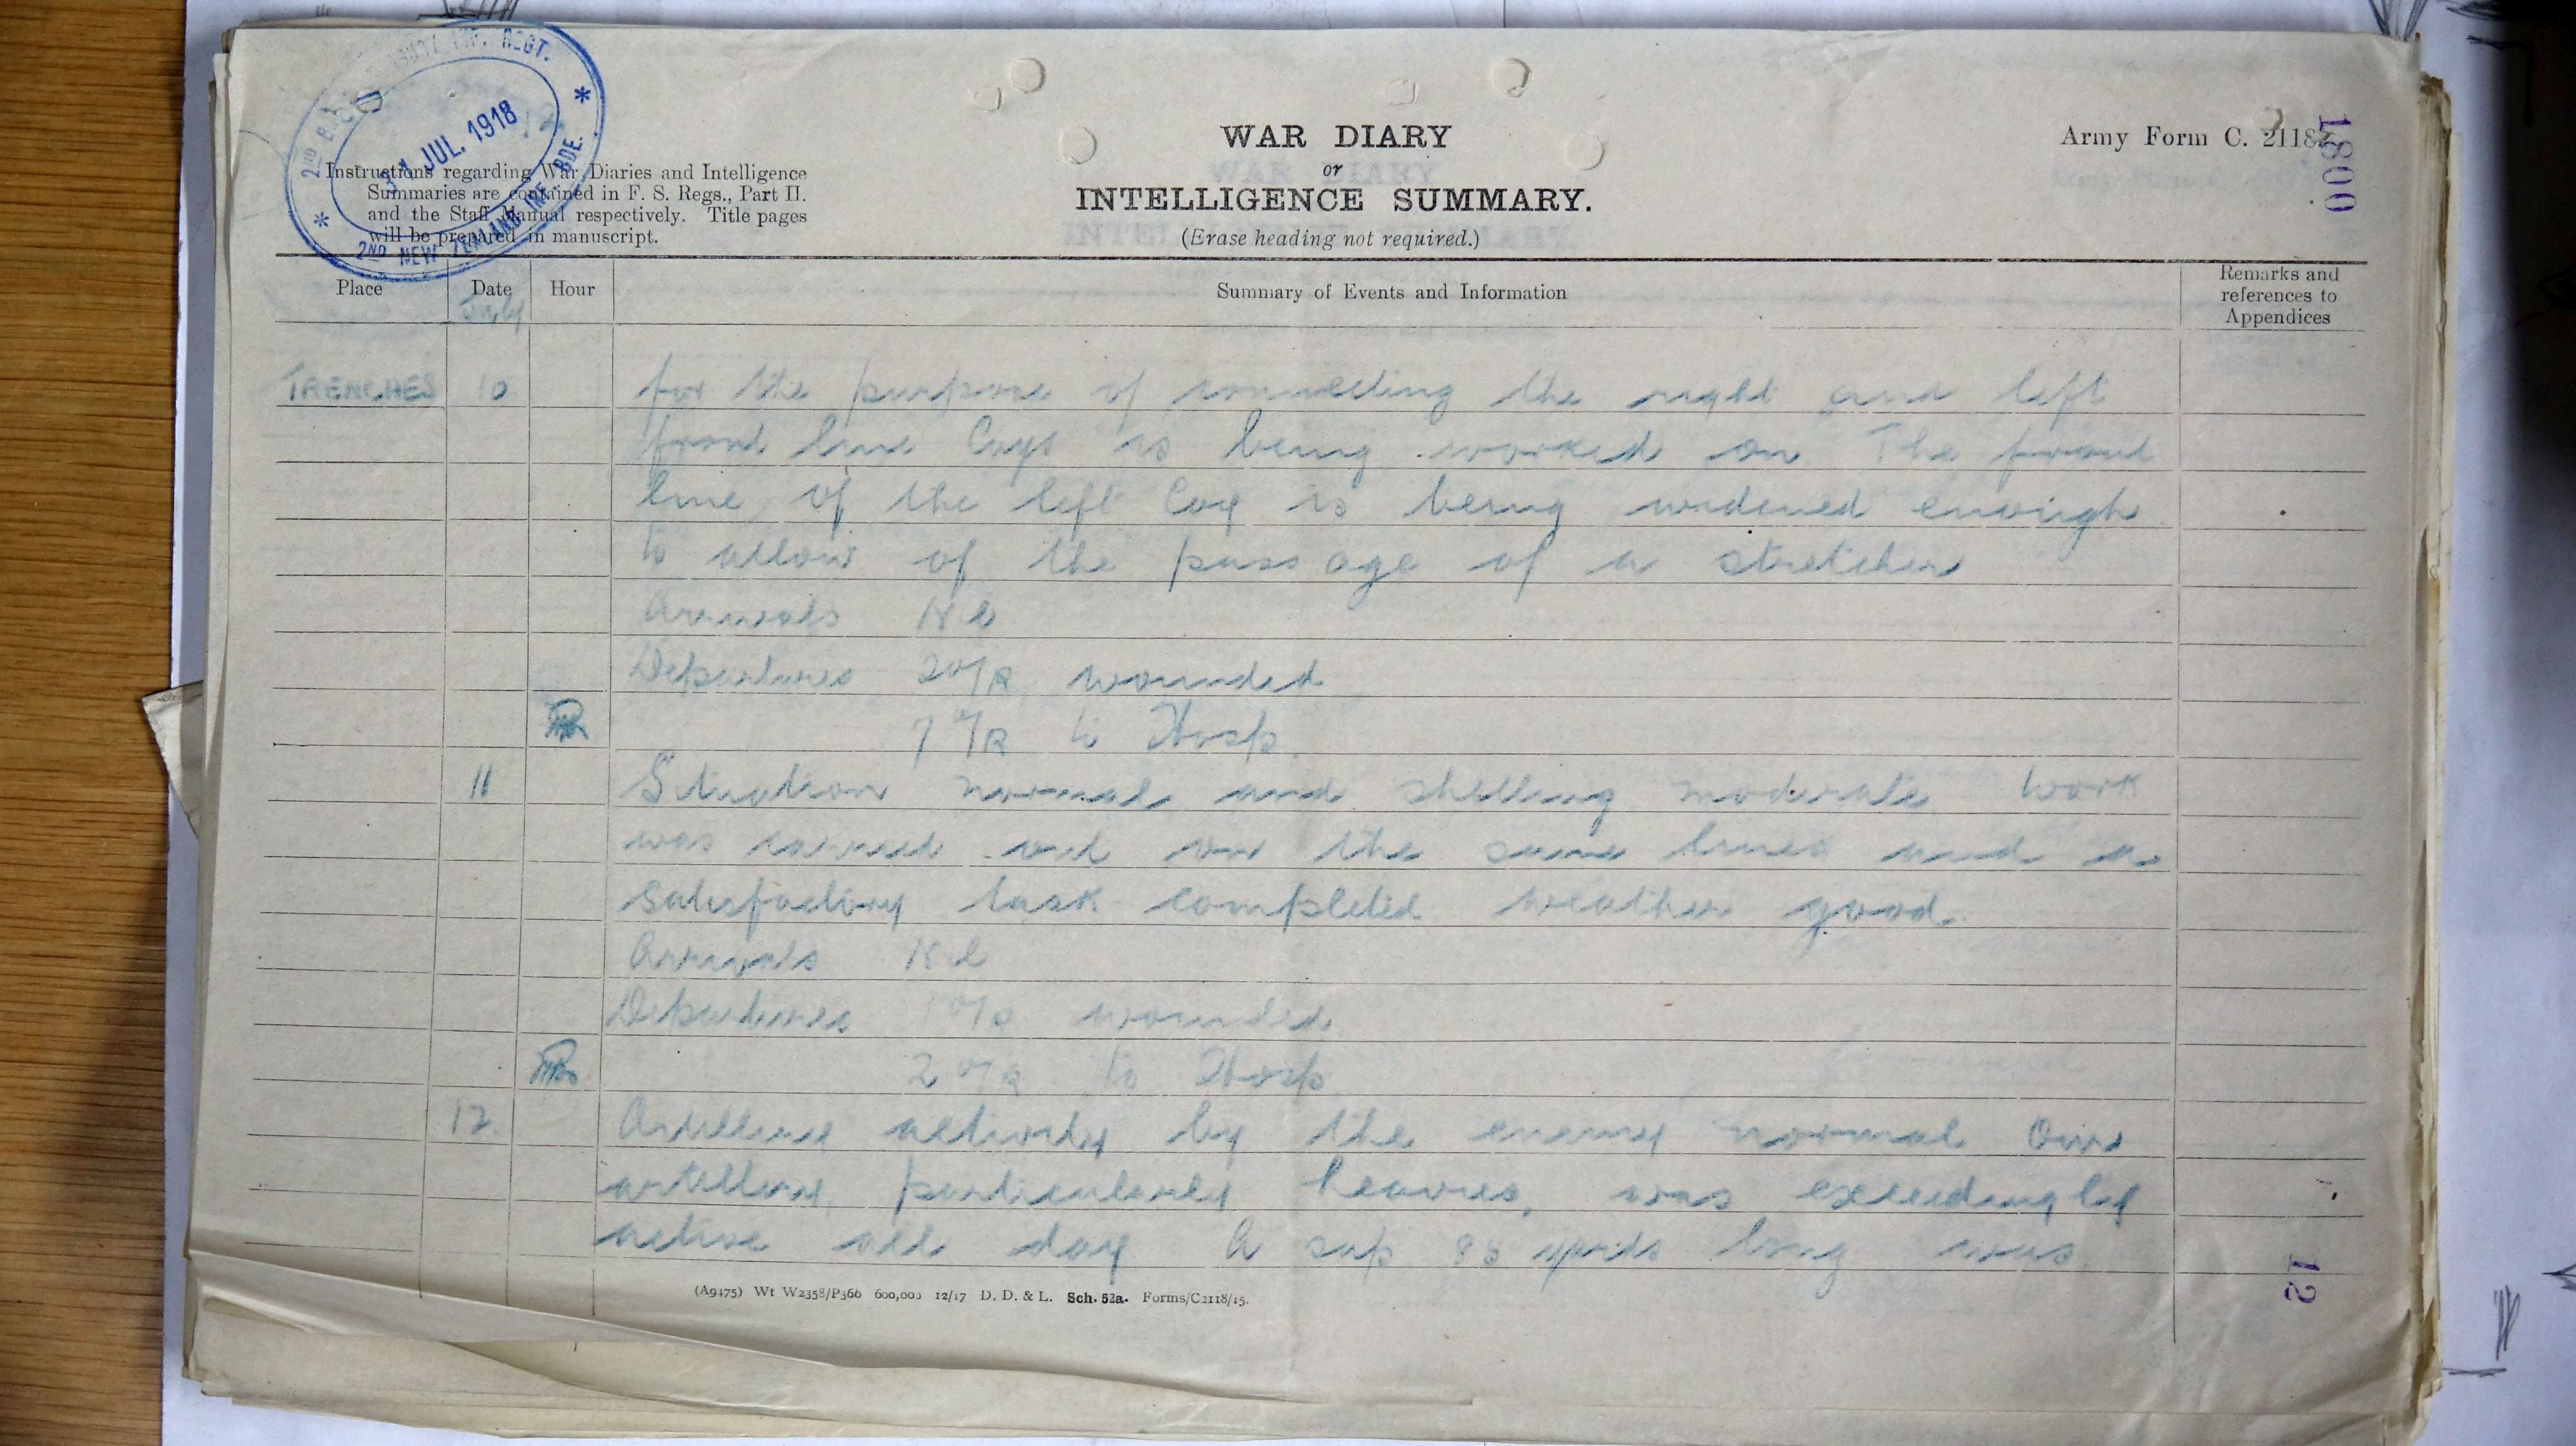 2ND NEW ZEALAND INF. BDE.
31 JUL. 1918
Instructions regarding War Diaries and Intelligence
Summaries are contained in F. S. Regs., Part II.
and the Staff Manual respectively. Title pages
will be prepared in manuscript.
WAR DIARY
or
INTELLIGENCE SUMMARY.
(Erase heading not required.)
Army Form C. 2118.
1800
Place Date Hour Summary of Events and Information Remarks and references to Appendices
July
TRENCHES 10 for the purpose of connecting the right and left
front line Coys is being worked on The front
line of the left Coy is being widened enough
to allow of the passage of a stretcher
Arrivals Nil
Departures 2 O/R wounded
7 O/R to Hosp.
11 Situation normal and shelling moderate work
was carried out on the same lines and a
satisfactory task completed weather good.
Arrivals Nil
Departures 1 O/R wounded
2 O/R to Hosp
12 Artillery activity by the enemy normal Our
artillery, particularly heavies, was exceedingly
active all day A sap 85 yards long was
(A9475) Wt W2358/P360 600,000 12/17 D. D. & L. Sch. 52a. Forms/C2118/15.
12